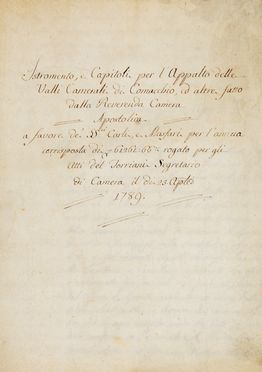 Istromento, e Capitoli per l'Appalto delle
Valli Camerali di Comacchio, ed altre fatto
dalla Reverenda Camera
Apostolica
a favore de Carli, e Massari per l'annua
corrisposta di rogato per gli
Atti del Torriani Segretario
di Camera il di 23 Aple
1789.